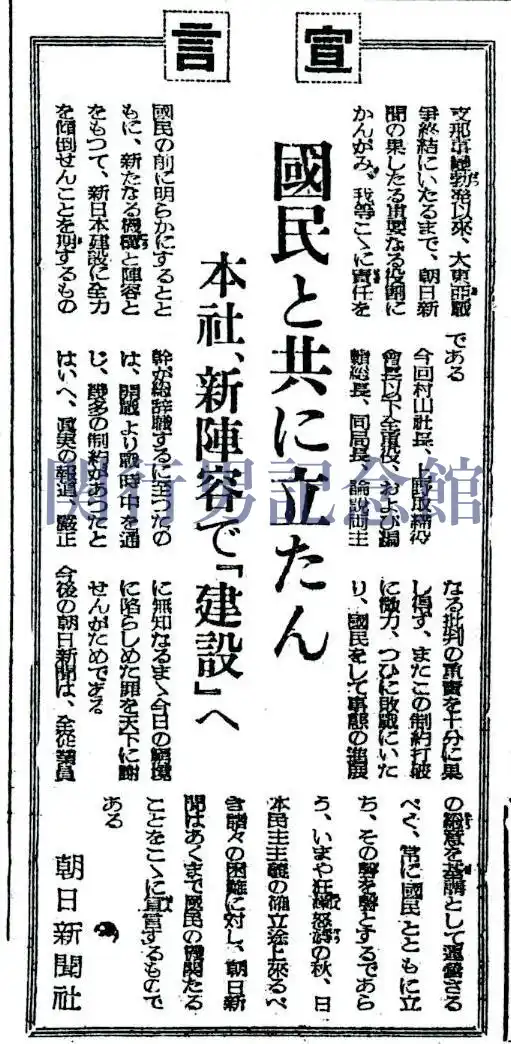 宣言
國民と共に立たん
本社、新陣容で「建設」へ
支那事變勃發以來、大東亞戰
爭終結にいたるまで、朝日新
聞の果したる重要なる役割に
かんがみ、我等こゝに責任を
國民の前に明らかにするとと
もに、新たなる機構と陣容と
をもつて、新日本建設に全力
を傾倒せんことを期するもの
である
今回村山社長、上野取締役
會長以下全重役、および編
輯總長、同局長、論説兩主
幹が總辭職するに至つたの
は、開戰より戰時中を通
じ、幾多の制約があつたと
はいへ、眞実の報道、嚴正
なる批判の重責を十分に果
し得ず、またこの制約打破
に微力、つひに敗戰にいた
り、國民をして事態の進展
に無知なるまゝ今日の窮境
に陷らしめた罪を天下に謝
せんがためである
今後の朝日新聞は、全從業員
の總意を基調として運營さる
べく、常に國民とともに立
ち、その聲を聲とするであら
う、いまや狂瀾怒濤の秋、日
本民主主義の確立途上來るべ
き諸々の困難に對し、朝日新
聞はあくまで國民の機關たる
ことをこゝに宣言するもので
ある
朝日新聞社
関行男記念館